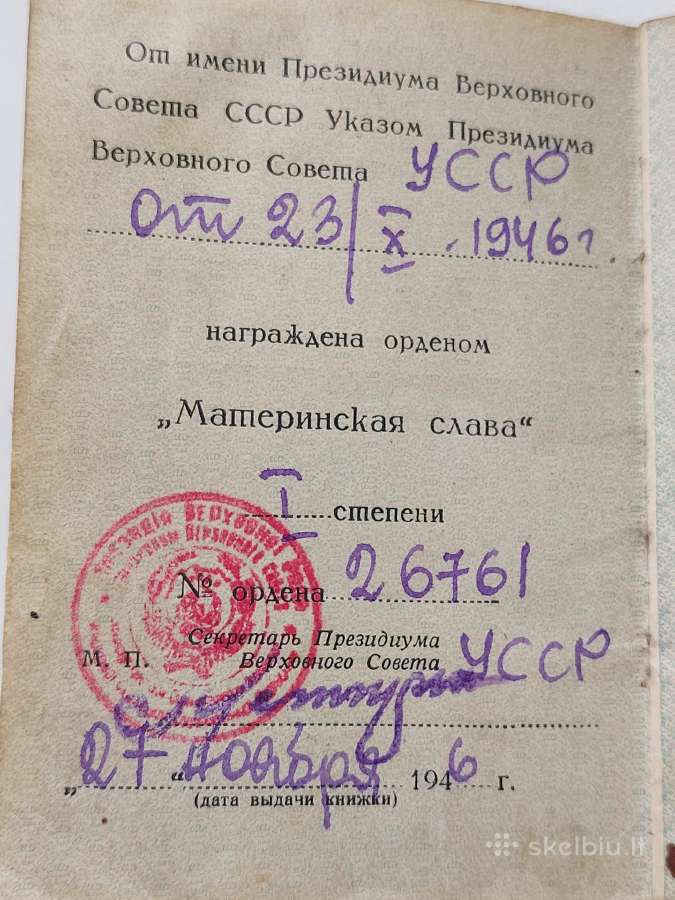 От имени Президиума Верховного
Совета СССР Указом Президиума
Верховного Совета УССР
от 23/X . 1946 г.
награждена орденом
„Материнская слава“
I степени
№ ордена 26761
Секретарь Президиума
М. П. Верховного Совета УССР
„27“ ноября 1946 г.
(дата выдачи книжки)
skelbiu.lt